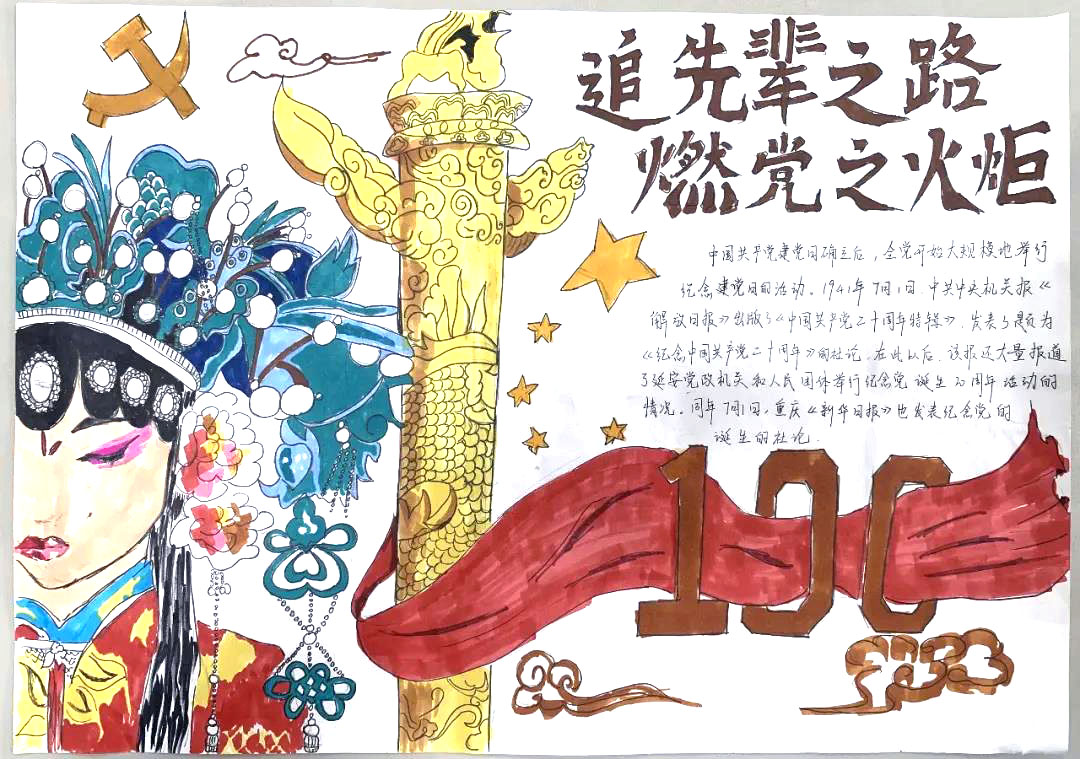 追先辈之路
燃党之火炬
中国共产党建党日确立后，全党开始大规模地举行
纪念建党日的活动。1941年7月1日，中共中央机关报《
解放日报》出版了《中国共产党二十周年特辑》，发表了题为
《纪念中国共产党二十周年》的社论。在此以后，该报还大量报道
了延安党政机关和人民团体举行纪念党诞生20周年活动的
情况。同年7月1日，重庆《新华日报》也发表纪念党的
诞生的社论.
100